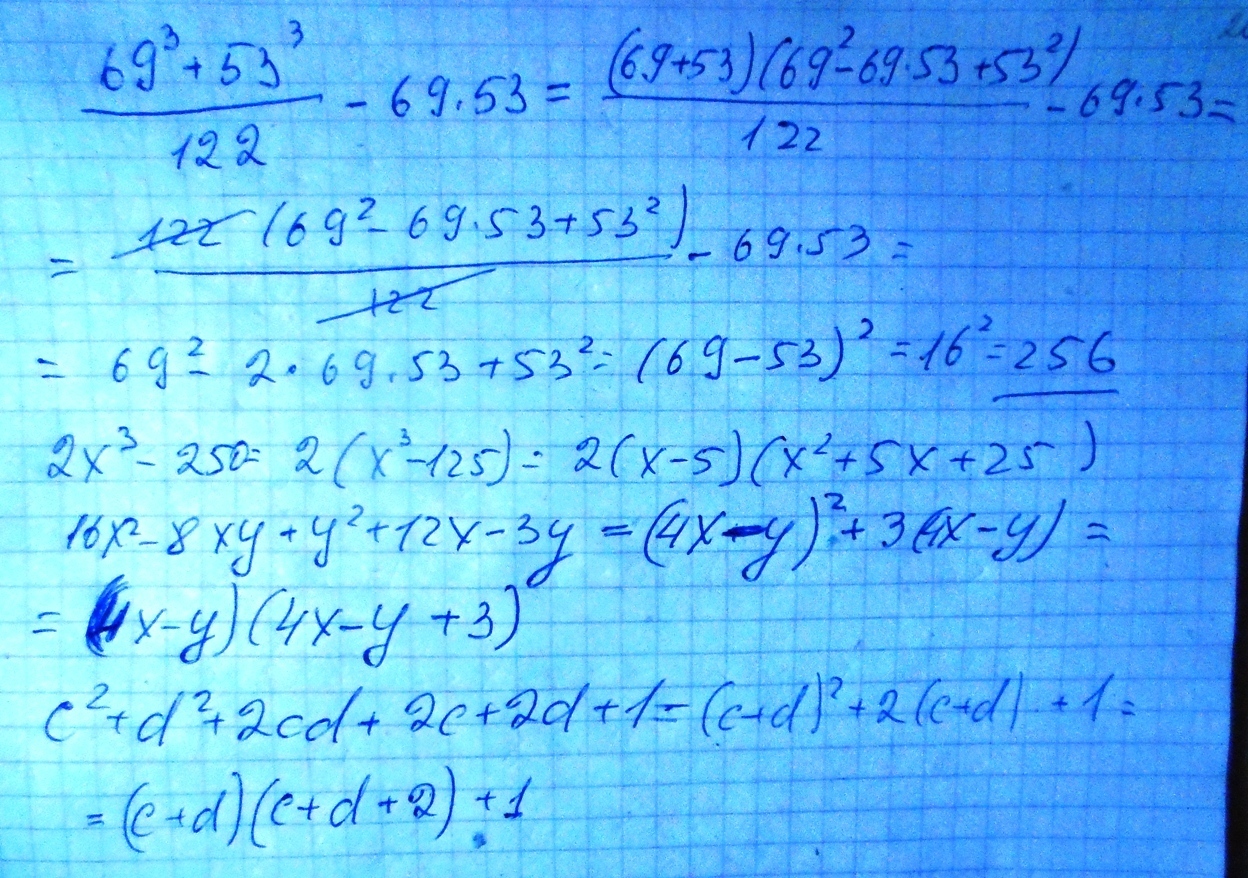 (69³ + 53³)/122 - 69·53 = ((69+53)(69²-69·53+53²))/122 - 69·53 =
= (122(69²-69·53+53²))/122 - 69·53 =
= 69² - 2·69·53+53² = (69-53)² = 16² = 256
2x³ - 250 = 2(x³-125) = 2(x-5)(x²+5x+25)
16x² - 8xy + y² + 12x - 3y = (4x-y)² + 3(4x-y) =
= (4x-y)(4x-y+3)
c²+d²+2cd+2c+2d+1 = (c+d)²+2(c+d)+1 =
= (c+d)(c+d+2)+1